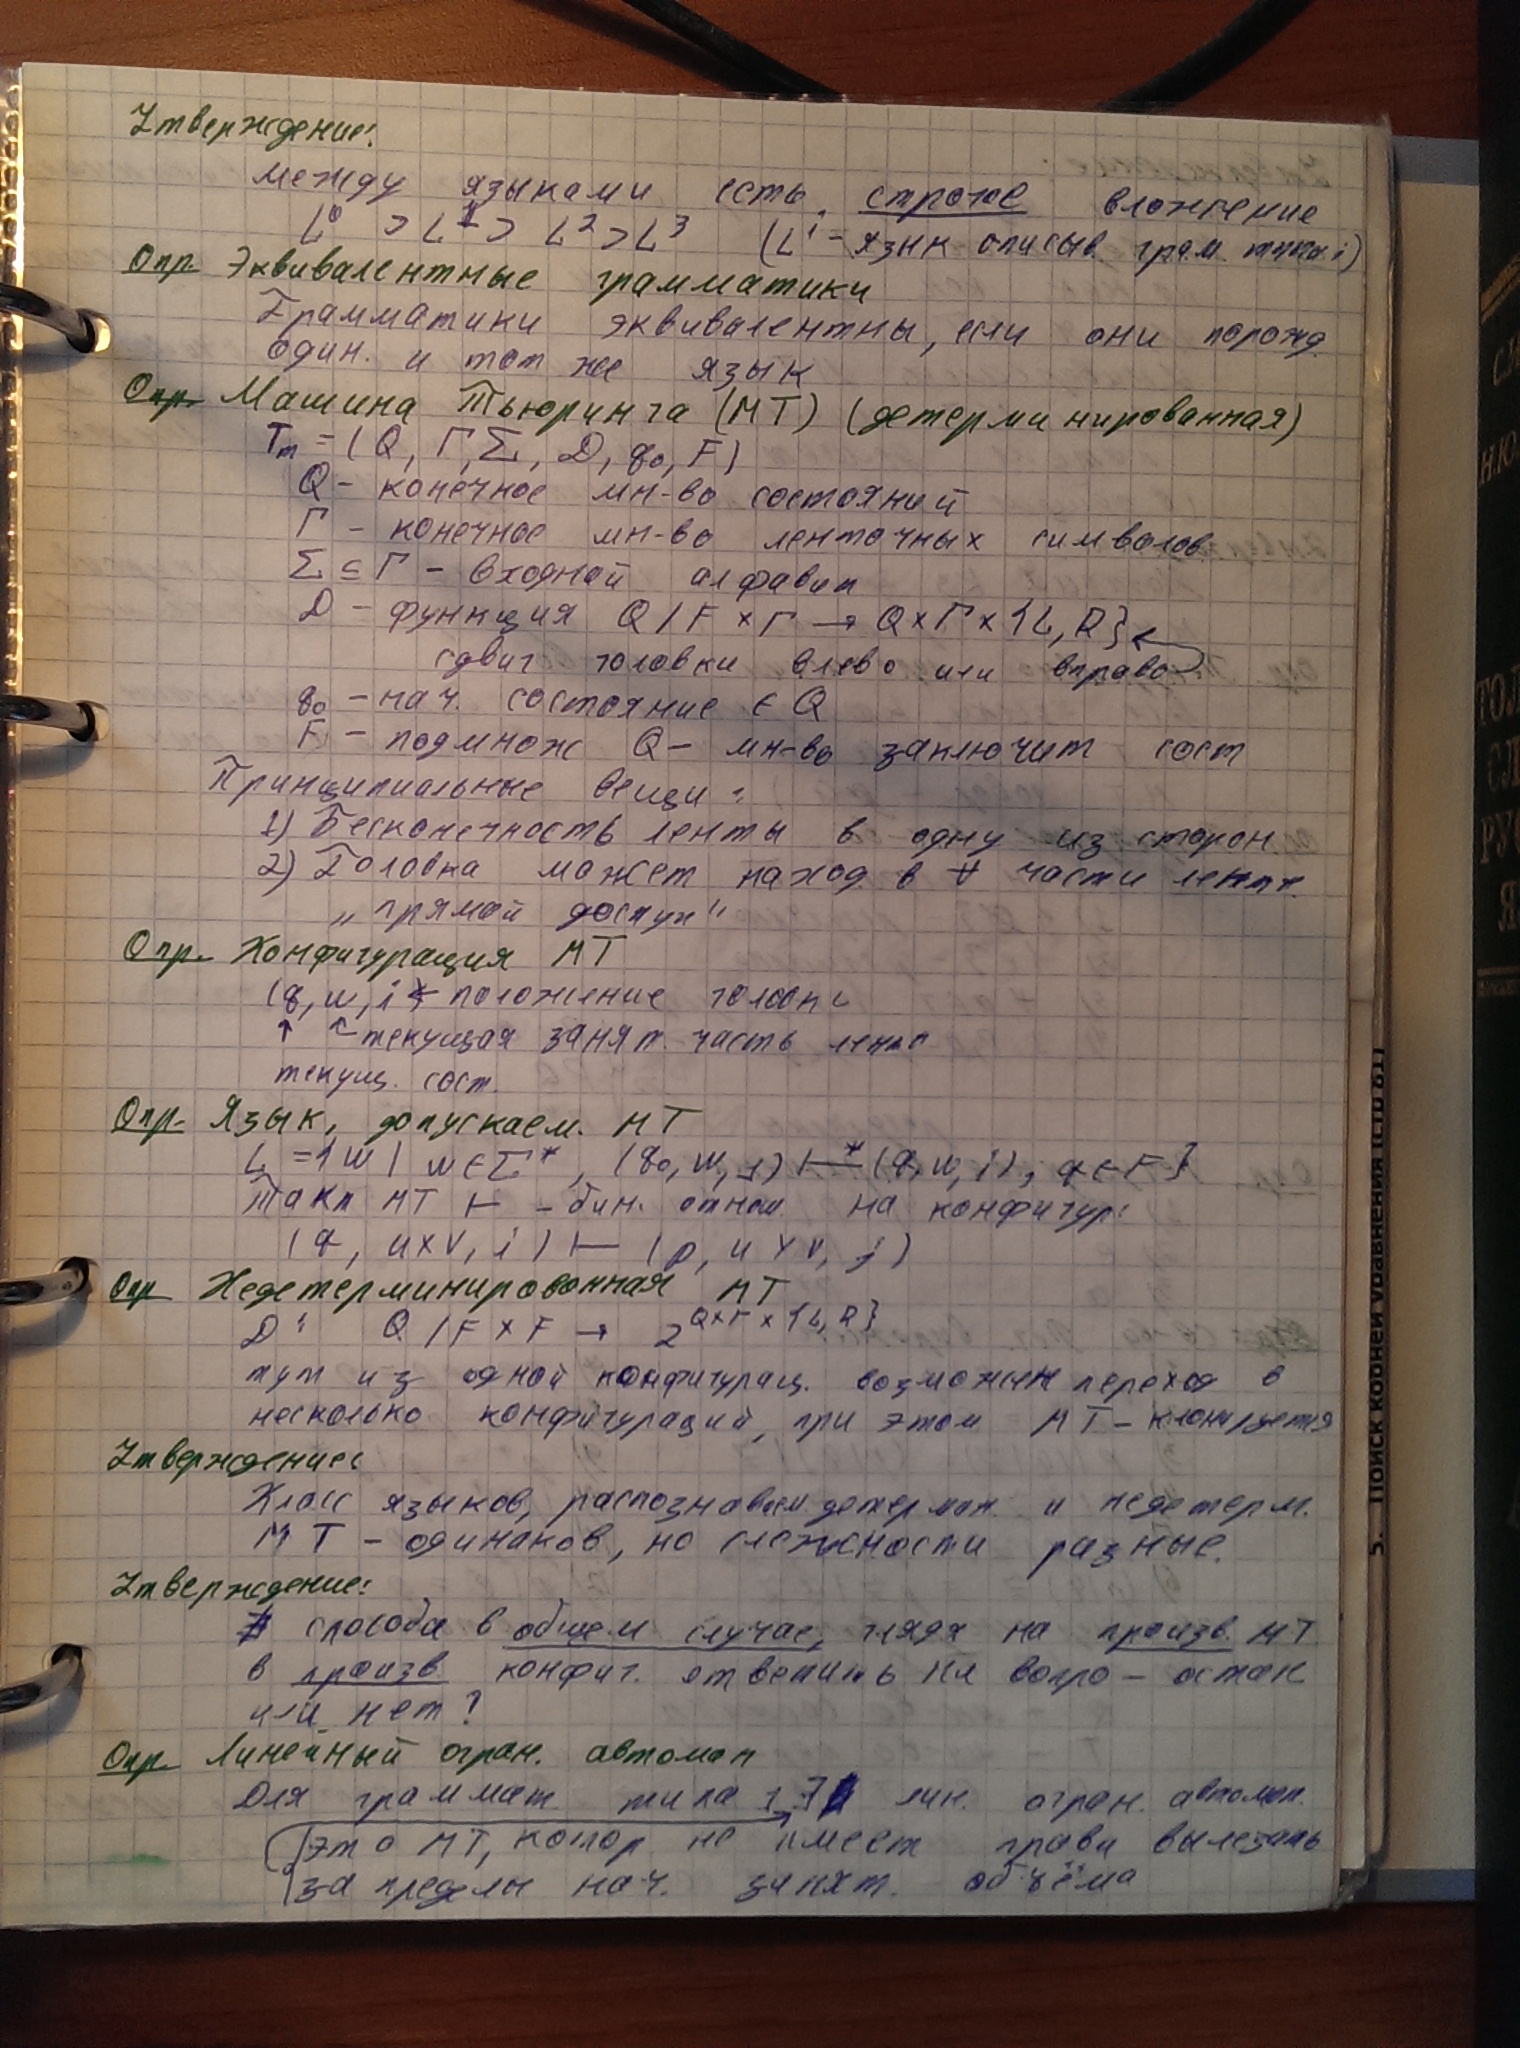 Утверждение:
между языками есть строгое вложение
L⁰ ⊃ L¹ ⊃ L² ⊃ L³ (Lⁱ – язык описыв. грам. типа i)
Опр. Эквивалентные грамматики
Грамматики эквивалентны, если они порожд.
один. и тот же язык
Опр. Машина Тьюринга (МТ) (детерминированная)
Tm = (Q, Г, Σ, D, q₀, F)
Q – конечное мн-во состояний
Г – конечное мн-во ленточных символов
Σ ⊆ Г – входной алфавит
D – функция Q / F × Г → Q × Г × {L, R}
сдвиг головки влево или вправо
q₀ – нач. состояние ∈ Q
F – подмнож Q – мн-во заключит сост
Принципиальные вещи:
1) Бесконечность ленты в одну из сторон
2) Головка может наход. в ∀ части ленты
„прямой доступ"
Опр. Конфигурация МТ
(q, w, i) ← положение головки
↑ ↖ текущая занят. часть ленты
текущ. сост.
Опр. Язык, допускаем. МТ
L = {w | w ∈ Σ*, (q₀, w, 1) ⊢* (q, w, i), q ∈ F}
Такт МТ ⊢ – бин. отнош. на конфигур:
(q, uxv, i) ⊢ (p, uyv, j)
Опр Недетерминированная МТ
D: Q / F × F → 2^{Q×Г×{L,R}}
тут из одной конфигурац. возможен переход в
несколько конфигураций, при этом МТ – клонируется
Утверждение:
Класс языков, распознаваем детермин. и недетерм.
МТ – одинаков, но сложности разные.
Утверждение:
∄ способа в общем случае, глядя на произв. МТ
в произв. конфиг. ответить на вопро – остан
или нет?
Опр. Линейный огран. автомат
Для граммат. типа 1 ∃ лин. огран. автомат.
это МТ, котор не имеет права вылезать
за пределы нач. занят. объёма
5. Поиск корней уравнения (стр 61)